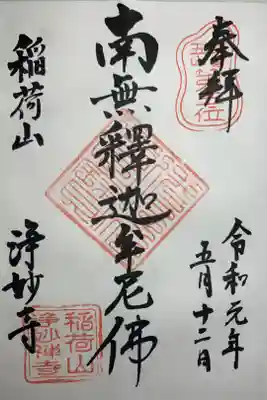 奉拝
令和元年
五月十二日
南無釋迦牟尼佛
稲荷山
浄妙寺
稲荷山
浄妙禅寺